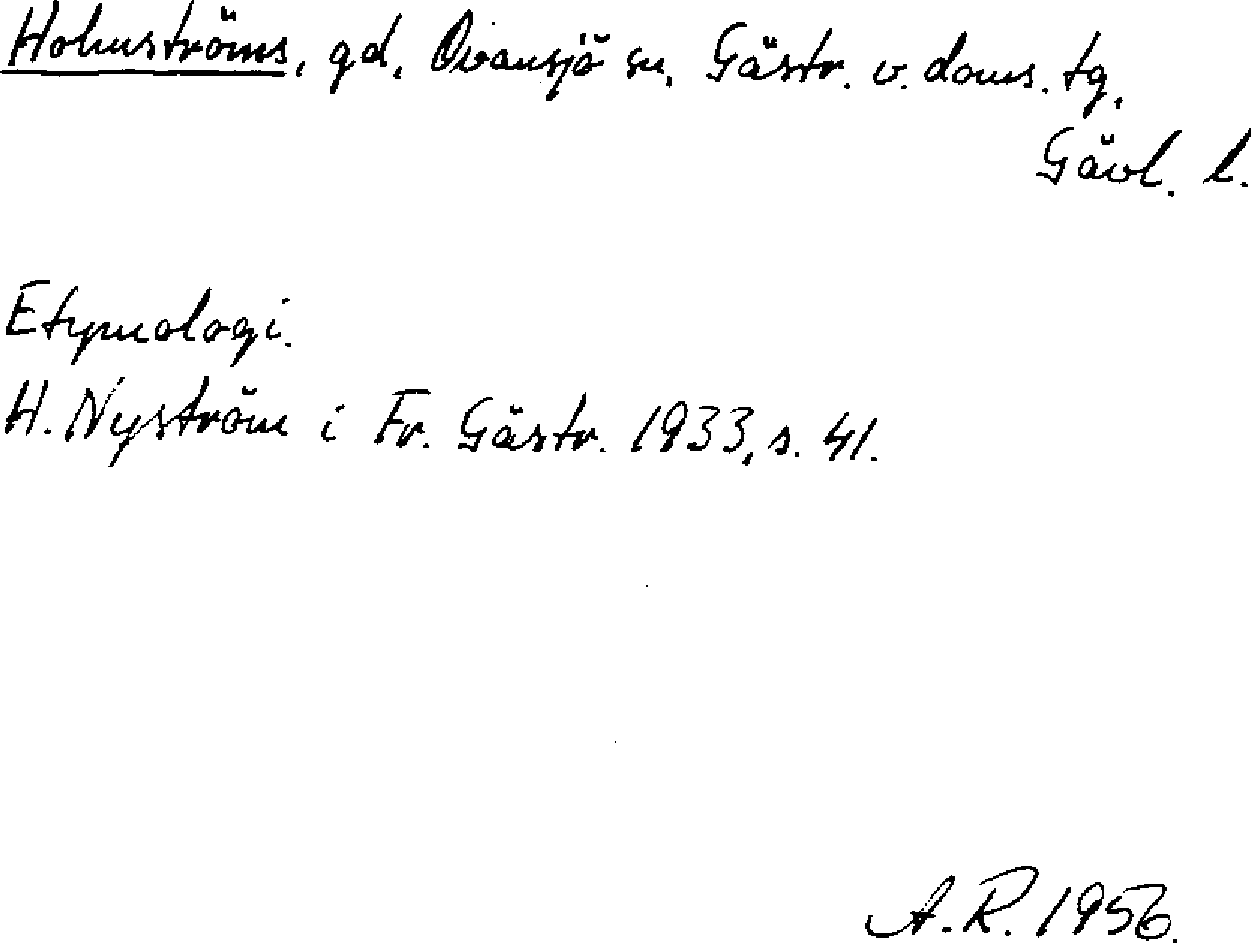 Holmströms, gd, Ovansjö sn, Gästr. v. doms. tg,
Gävl. l.
Etymologi.
H. Nyström i Fr. Gästr. 1933, s. 41.
A. R. 1956.